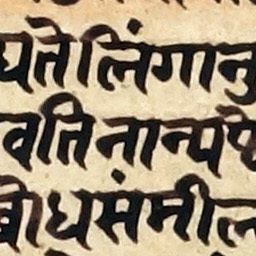 यते लिंगानु
वति नान्यप्र
बोधसंमील